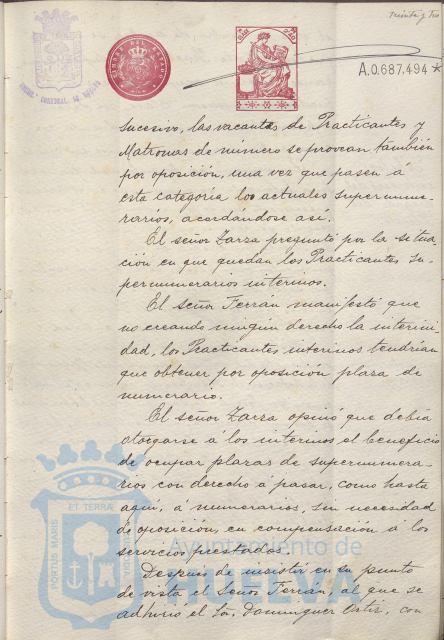 treinta y tres
TIMBRE DEL ESTADO
A.0.687,494*
sucesivo, las vacantes de Practicantes y
Matronas de número se provean también
por oposición, una vez que pasen á
esta categoría los actuales supernume-
rarios, acordándose así.
El señor Zarza preguntó por la situa-
ción en que quedan los Practicantes su-
pernumerarios interinos.
El señor Ferrán manifestó que
no creando ningun derecho la interini-
dad, los Practicantes interinos tendrían
que obtener por oposición plaza de
numerario.
El señor Zarza opinó que debía
otorgarse á los interinos el beneficio
de ocupar plazas de supernumera-
rios con derecho á pasar, como hasta
aquí, á numerarios, sin necesidad
de oposición, en compensación á los
servicios prestados.
Despues de insistir en su punto
de vista el Señor Ferrán, al que se
adhirió el Sr. Dominguez Ortiz, con
PORTUS MARIS
ET TERRA
Ayuntamiento de
HUELVA